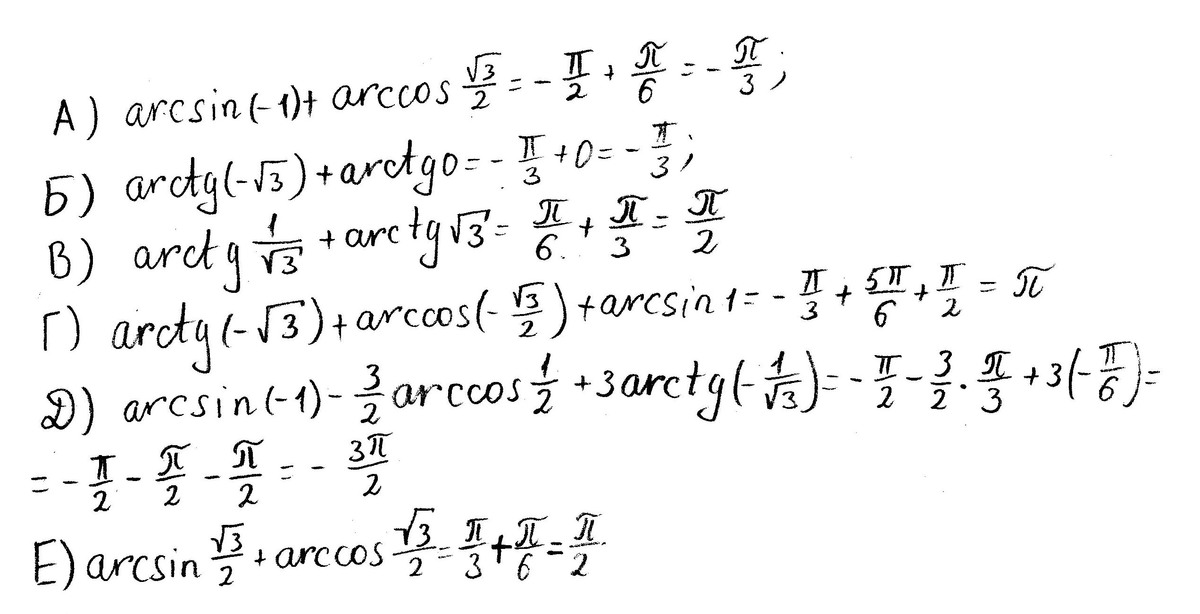 А) arcsin(-1)+ arccos √3/2 = - π/2 + π/6 = - π/3;
Б) arctg(-√3)+arctg0=- π/3 +0= - π/3;
В) arctg 1/√3 + arctg√3= π/6 + π/3 = π/2
Г) arctg(-√3)+arccos(- √3/2)+arcsin1=- π/3 + 5π/6 + π/2 = π
Д) arcsin(-1)- 3/2 arccos 1/2 +3arctg(- 1/√3)=- π/2 - 3/2 · π/3 +3(- π/6)=
=- π/2 - π/2 - π/2 = - 3π/2
Е) arcsin √3/2 + arccos √3/2 = π/3 + π/6 = π/2